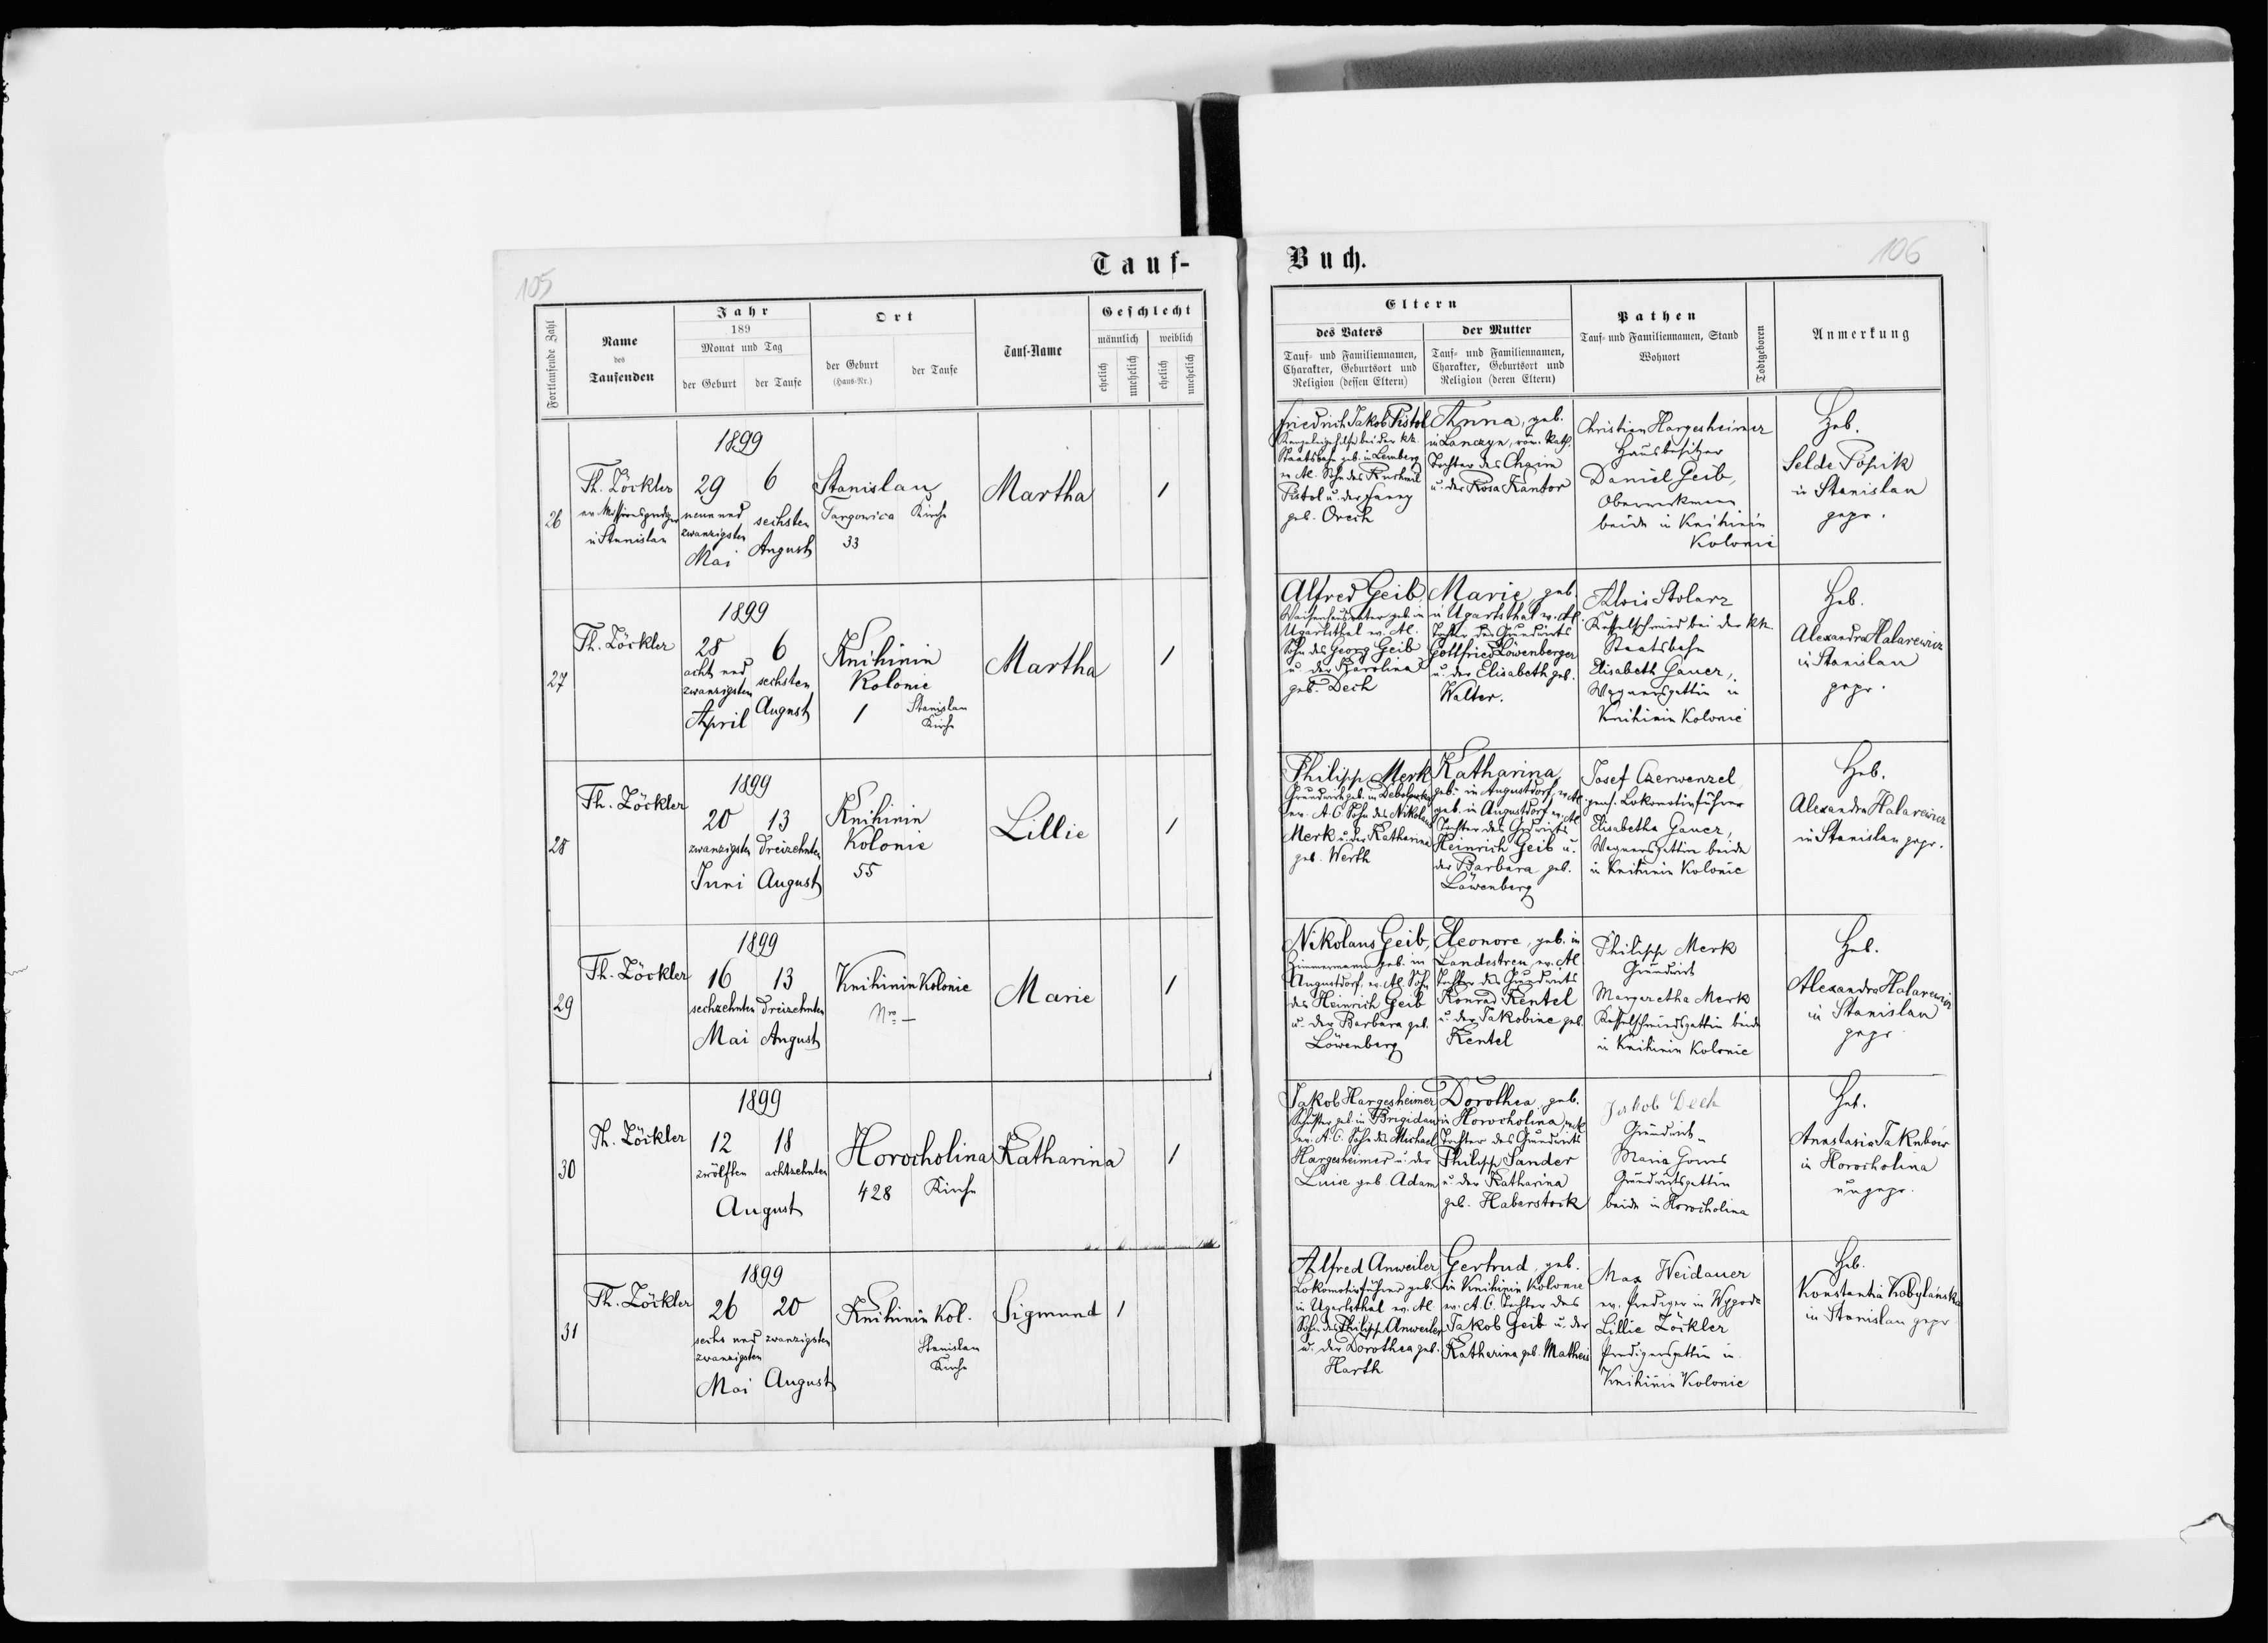 105
Tauf-
Fortlaufende Zahl
Name
des
Taufenden
Jahr
189
Monat und Tag
der Geburt
der Taufe
Ort
der Geburt
(Haus-Nr.)
der Taufe
Tauf-Name
Geschlecht
männlich
weiblich
ehelich
unehelich
ehelich
unehelich
26
Th. Zöckler
ev. Missionsprediger
in Stanislau
1899
29
neun und
zwanzigsten
Mai
6
sechsten
August
Stanislau
Targowica
33
Kirche
Martha
1
27
Th. Zöckler
1899
28
acht und
zwanzigsten
April
6
sechsten
August
Knihinin
Kolonie
1
Stanislau
Kirche
Martha
1
28
Th. Zöckler
1899
20
zwanzigsten
Juni
13
dreizehnten
August
Knihinin
Kolonie
55
Lillie
1
29
Th. Zöckler
1899
16
sechzehnten
Mai
13
dreizehnten
August
Knihinin Kolonie
Nro –
Marie
1
30
Th. Zöckler
1899
12
zwölften
18
achtzehnten
August
Horocholina
428
Kirche
Katharina
1
31
Th. Zöckler
1899
26
sechs und
zwanzigsten
Mai
20
zwanzigsten
August
Knihinin Kol.
Stanislau
Kirche
Sigmund
1
Buch.
106
Eltern
des Vaters
Tauf- und Familiennamen,
Charakter, Geburtsort und
Religion (dessen Eltern)
der Mutter
Tauf- und Familiennamen,
Charakter, Geburtsort und
Religion (deren Eltern)
Pathen
Tauf- und Familiennamen, Stand
Wohnort
Todtgeboren
Anmerkung
Friedrich Jakob Pistol
bei der kk.
Staatsbahn geb. in Lemberg
Sohn des
Pistol u. der Fanny
geb. Orech
Anna, geb.
in Lanczyn, röm. kath.
Tochter des Chaim
u. der Rosa Kantor
Christian Hargesheimer
Hausbesitzer
Daniel Geib,
beide in Knihinin
Kolonie
Heb.
Selde Popik
in Stanislau
gepr.
Alfred Geib,
Waisenhausvater geb. in
Ugartsthal ev. A.C.
Sohn des Georg Geib
u. der Karolina
geb. Dech
Marie, geb.
in Ugartsthal ev. A.C.
Tochter des Grundwirts
Gottfried Löwenberger
u. der Elisabeth geb.
Walter.
Alois Stolarz
Kesselschmied bei der kk.
Staatsbahn
Elisabeth Gauer,
Wagnersgattin in
Knihinin Kolonie
Heb.
Alexandra Halarewicz
in Stanislau
gepr.
Philipp Merk
Grundwirt geb. in
ev. A.C. Sohn des Nikolaus
Merk u. der Katharina
geb. Werth
Katharina
geb. in Augustdorf, ev. A.C.
geb. in Augustdorf ev. A.C.
Tochter des Grdwirts
Heinrich Geib u.
der Barbara geb.
Löwenberg
Josef Czerwenzel,
pens. Lokomotivführer
Elisabetha Gauer,
Wagnersgattin beide
in Knihinin Kolonie
Heb.
Alexandra Halarewicz
in Stanislau gepr.
Nikolaus Geib,
Zimmermann geb. in
Augustdorf, ev. A.C. Sohn
des Heinrich Geib
u. der Barbara geb.
Löwenberg
Eleonore, geb. in
Landestreu, ev. A.C.
Tochter des Grundwirts
Konrad Rentel
u. der Jakobine geb.
Rentel
Philipp Merk
Grundwirt
Margaretha Merk
Kesselschmiedsgattin beide
in Knihinin Kolonie
Heb.
Alexandra Halarewicz
in Stanislau
gepr
Jakob Hargesheimer
Schuster geb. in Brigidau
ev. A.C. Sohn des Michael
Hargesheimer u. der
Luise geb. Adam
Dorothea, geb.
in Horocholina, ev. A.C.
Tochter des Grundwirts
Philipp Sander
u. der Katharina
geb. Haberstock
Jakob Dech
Grundwirt
Maria
Grundwirtsgattin
beide in Horocholina
Heb.
Anastasia Jakubow
in Horocholina
ungepr.
Alfred Anweiler
Lokomotivführer geb.
in Ugartsthal ev. A.C.
Sohn des Philipp Anweiler
u. der Dorothea geb.
Harth
Gertrud, geb.
in Knihinin Kolonie
ev. A.C. Tochter des
Jakob Geib u. der
Katharina geb. Matheis
Max Weidauer
ev. Prediger in Wygoda
Lillie Zöckler
Predigersgattin in
Knihinin Kolonie
Heb.
Konstantia Kobylanska
in Stanislau gepr